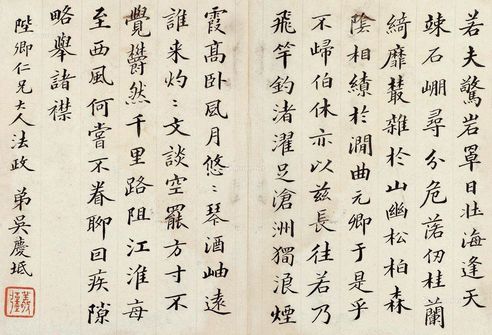 若夫驚岩罩日壯海逢天
竦石崩尋分危落仞桂蘭
綺靡叢雜於山幽松柏森
陰相績於澗曲元卿于是乎
不歸伯休亦以茲長往若乃
飛竿釣渚濯足滄洲獨浪煙
霞高卧風月悠〻琴酒岫遠
誰来灼〻文談空罷方寸不
覺欝然千里路阻江淮每
至西風何嘗不眷聊回疾隙
略舉諸襟
陛卿仁兄大人法政 弟吳慶坻